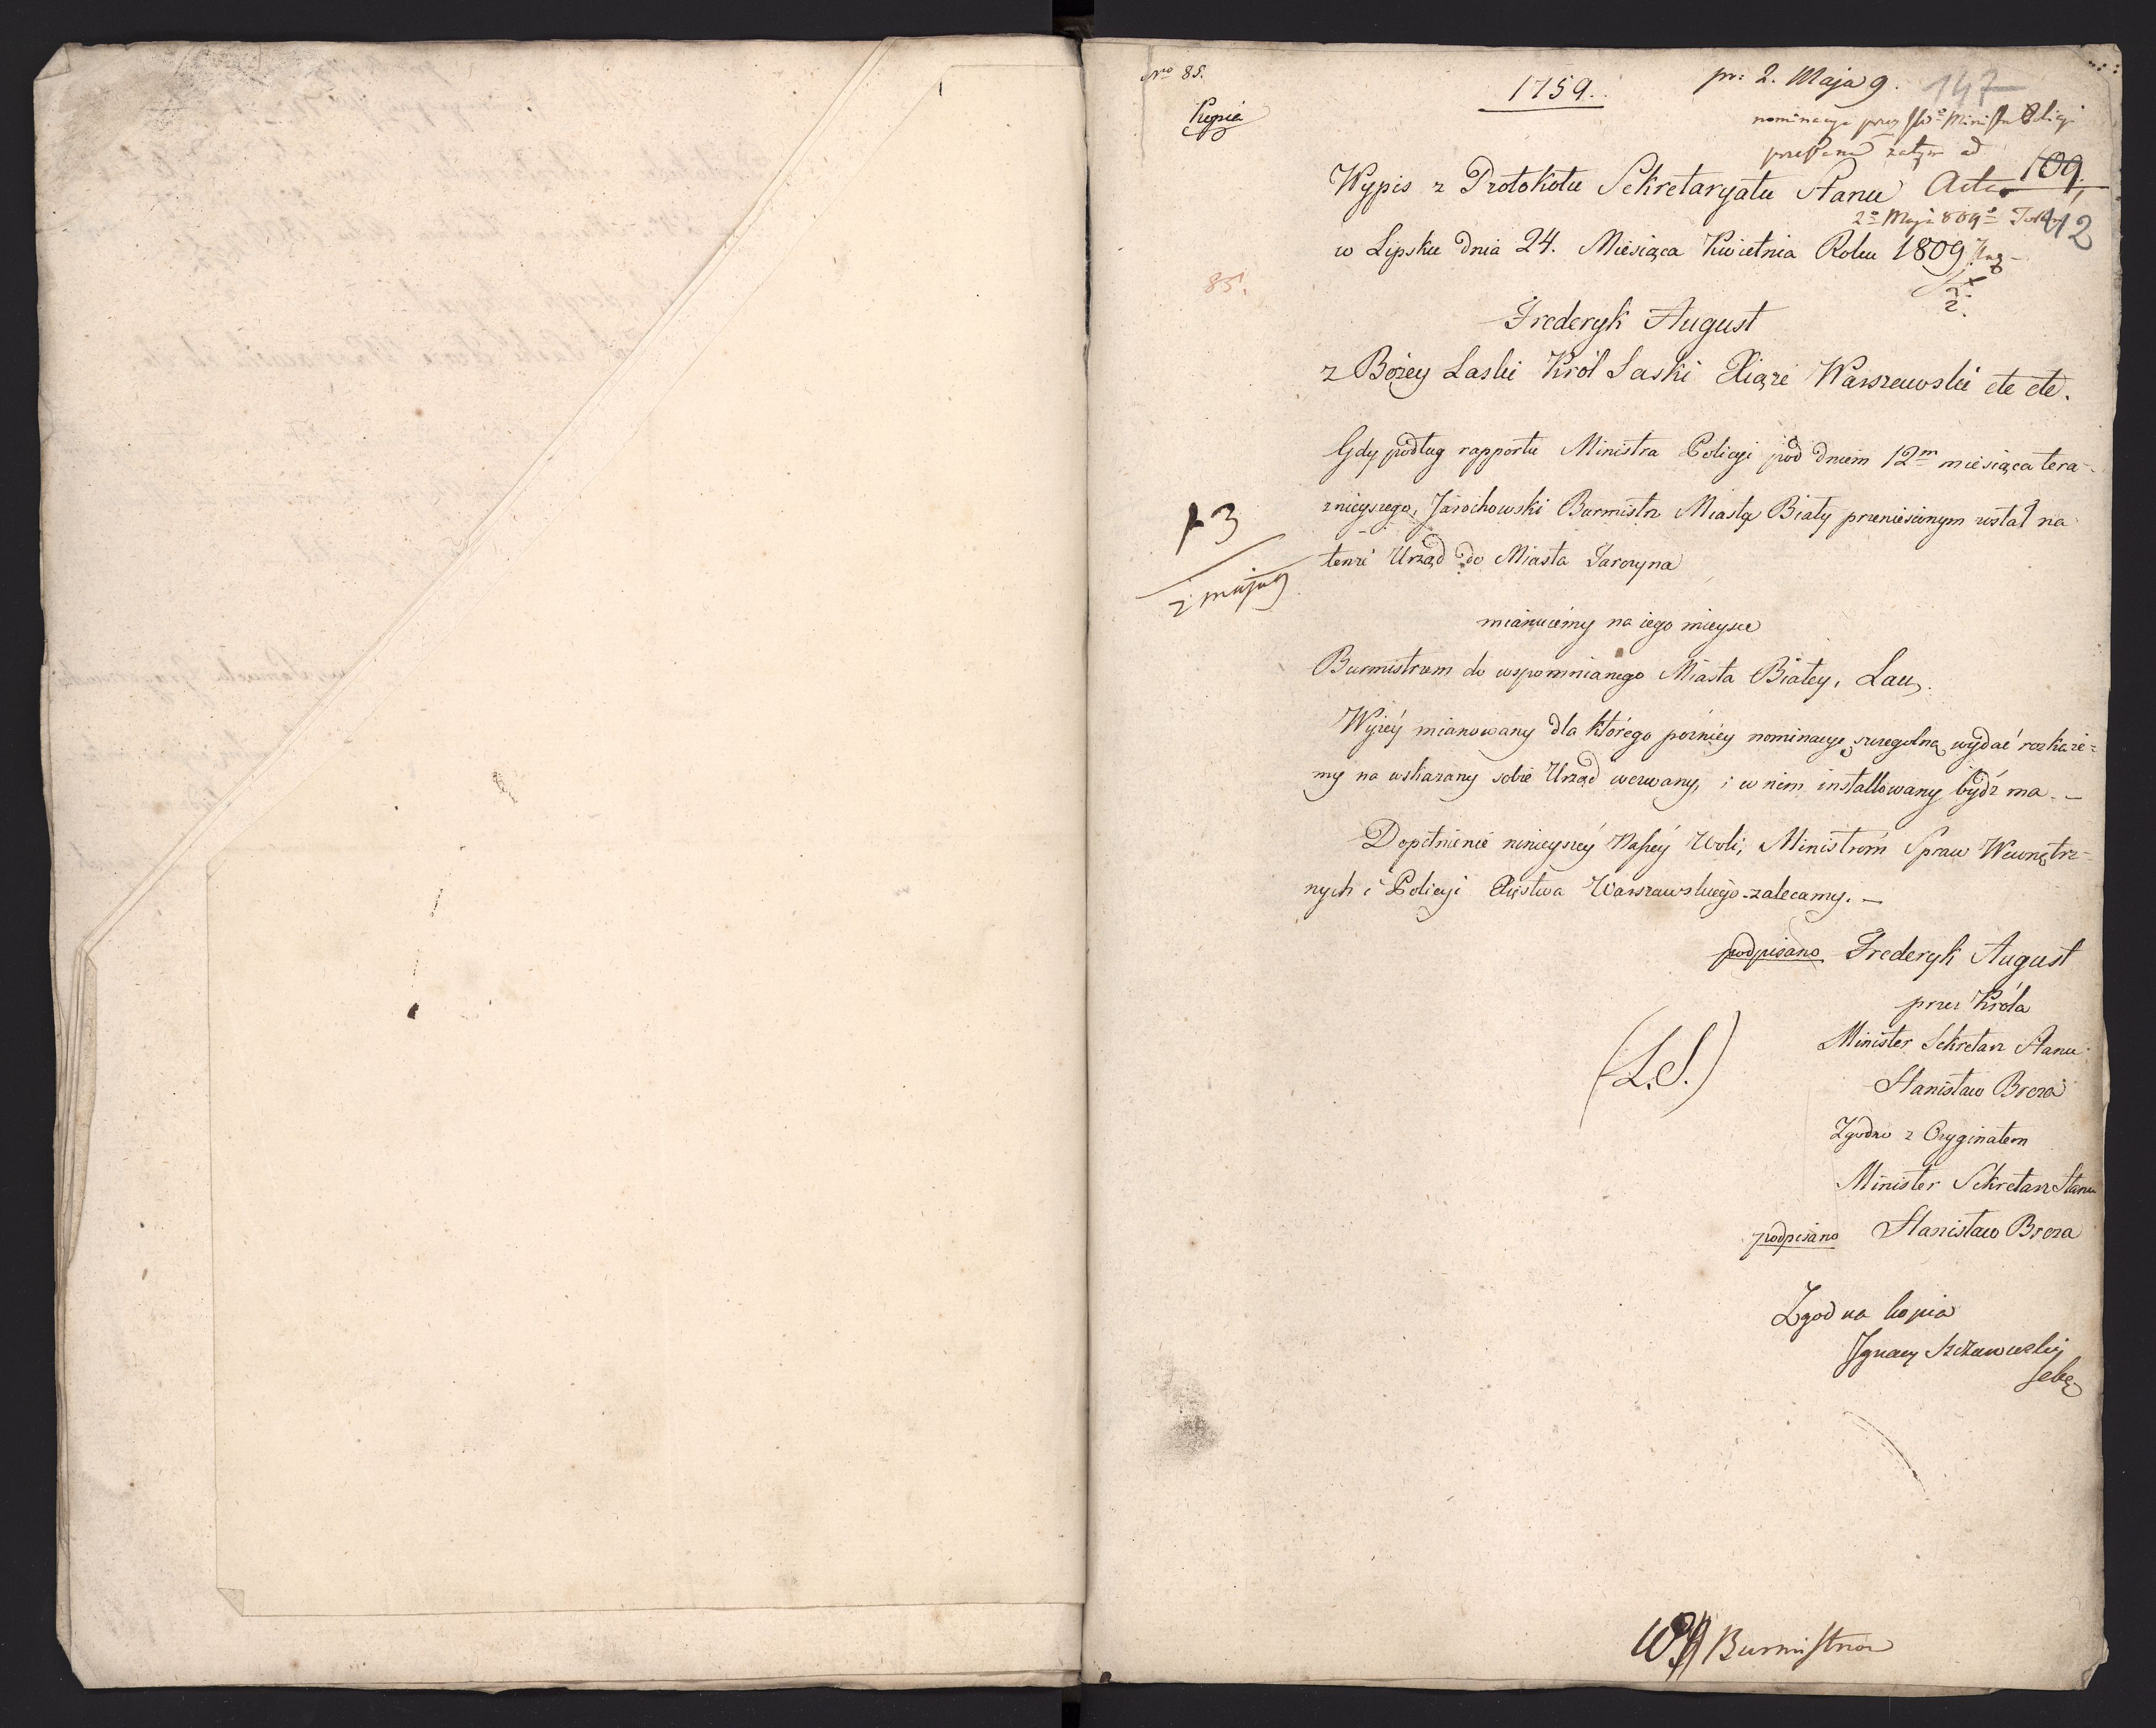 Nro 85.
1759.
pr: 2. Maja 9.
147
Kopia
nominacya przez Ministra Policyi
109.
Wypis z Protokołu Sekretaryatu Stanu
112
w Lipsku dnia 24. Miesiąca Kwietnia Roku 1809
85.
Frederyk August
z Bożey Łaski Król Saski Xiąże Warszawski etc etc.
Gdy podług rapportu Ministra Policyi pod dniem 12m miesiąca tera-
znieyszego, Jarochowski Burmistrz Miasta Biały przeniesionym został na
tenże Urząd do Miasta Jaroczyna
73
2 maja 9
mianuiemy na iego mieysce
Burmistrzem do wspomnianego Miasta Białey, Lau.
Wyżey mianowany dla którego poźniey nominacyę szczegolną wydać rozkaże-
my na wskazany sobie Urząd wezwany, i w nim installowany bydź ma. –
Dopełnienie ninieyszey Naszey Woli, Ministróm Spraw Wewnętrz-
nych i Policyi Xięstwa Warszawskiego zalecamy. –
podpisano Frederyk August
przez Króla
Minister Sekretarz Stanu
(L.S.)
Stanisław Breza
Zgodno z Oryginałem
Minister Sekretarz Stanu
podpisano Stanisław Breza
Zgodna kopia
Ignacy
Burmistrza